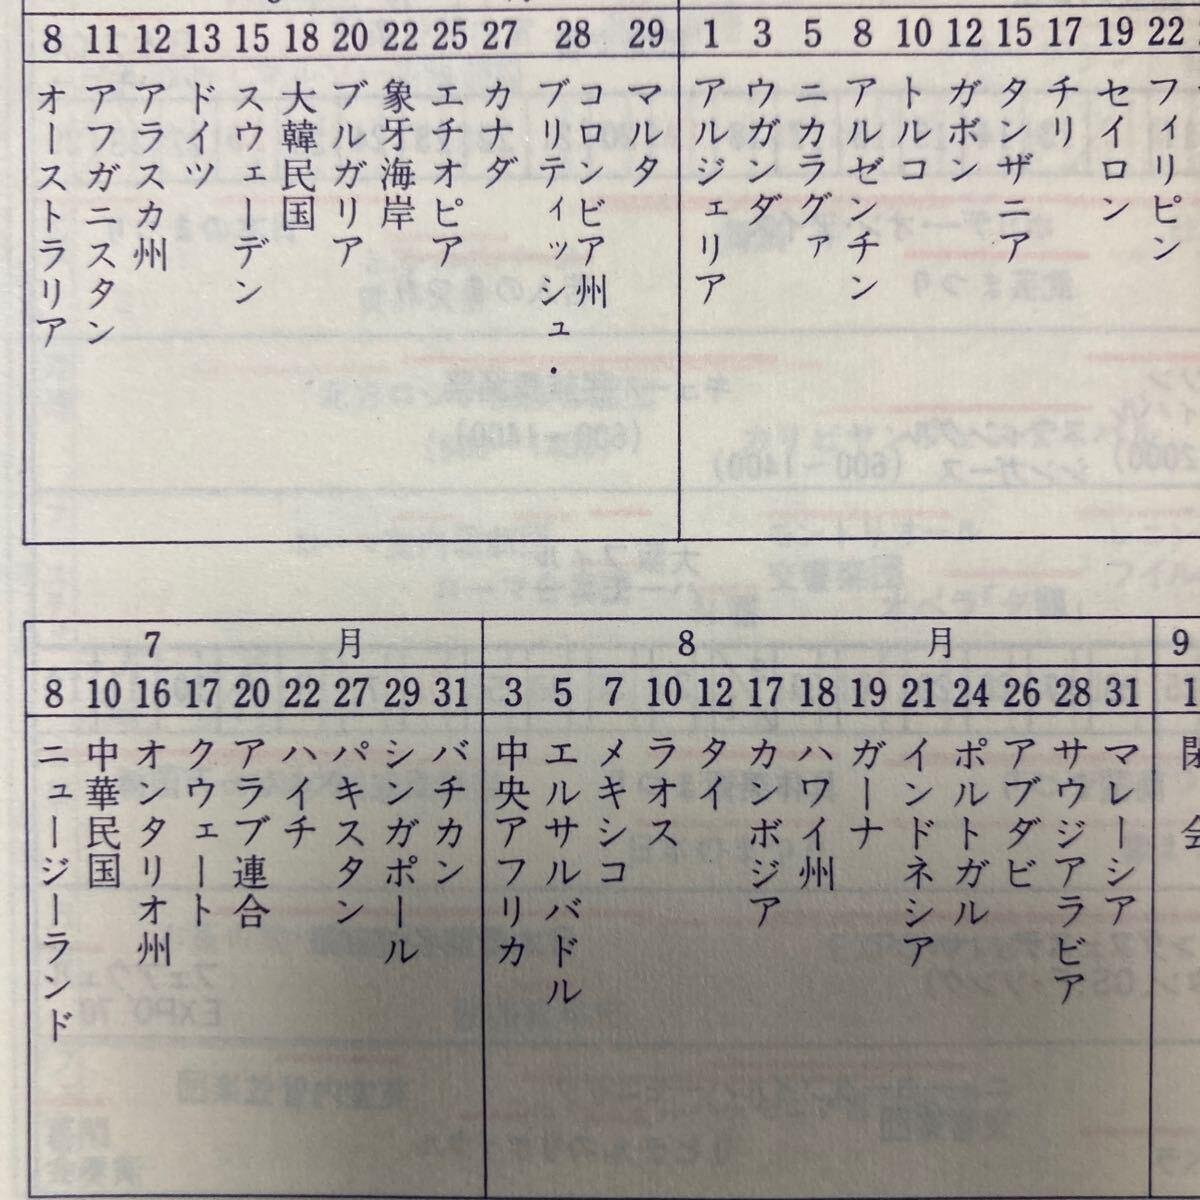 8 11 12 13 15 18 20 22 25 27 28 29 1 3 5 8 10 12 15 17 19 22
オーストラリア
アフガニスタン
アラスカ州
ドイツ
スウェーデン
大韓民国
ブルガリア
象牙海岸
エチオピア
カナダ
ブリティッシュ・
コロンビア州
マルタ
アルジェリア
ウガンダ
ニカラグァ
アルゼンチン
トルコ
ガボン
タンザニア
チリ
セイロン
フィリピン
7月 8月 9
8 10 16 17 20 22 27 29 31 3 5 7 10 12 17 18 19 21 24 26 28 31 1
ニュージーランド
中華民国
オンタリオ州
クウェート
アラブ連合
ハイチ
パキスタン
シンガポール
バチカン
中央アフリカ
エルサルバドル
メキシコ
ラオス
タイ
カンボジア
ハワイ州
ガーナ
インドネシア
ポルトガル
アブダビ
サウジアラビア
マレーシア
閉会